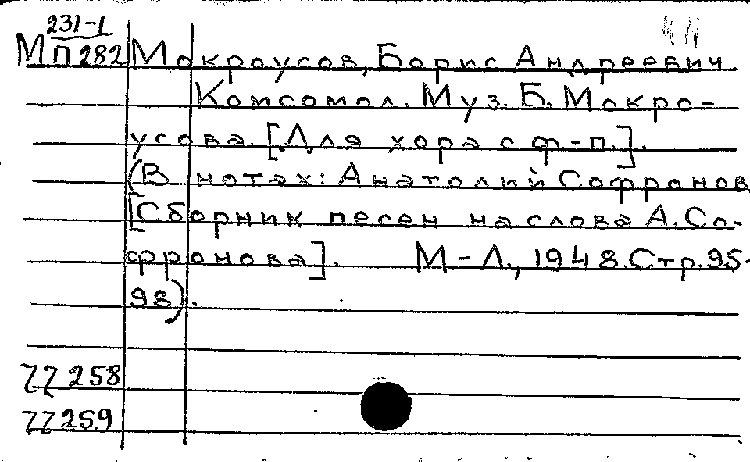 231-1
МП282 Мокроусов, Борис Андреевич
Комсомол. Муз. Б. Мокро-
усова. [Для хора с ф-п.].
(В нотах: Анатолий Софронов
[Сборник песен на слова А. Со-
фронова]. М-Л., 1948. Стр. 95-
98).
77258
77259